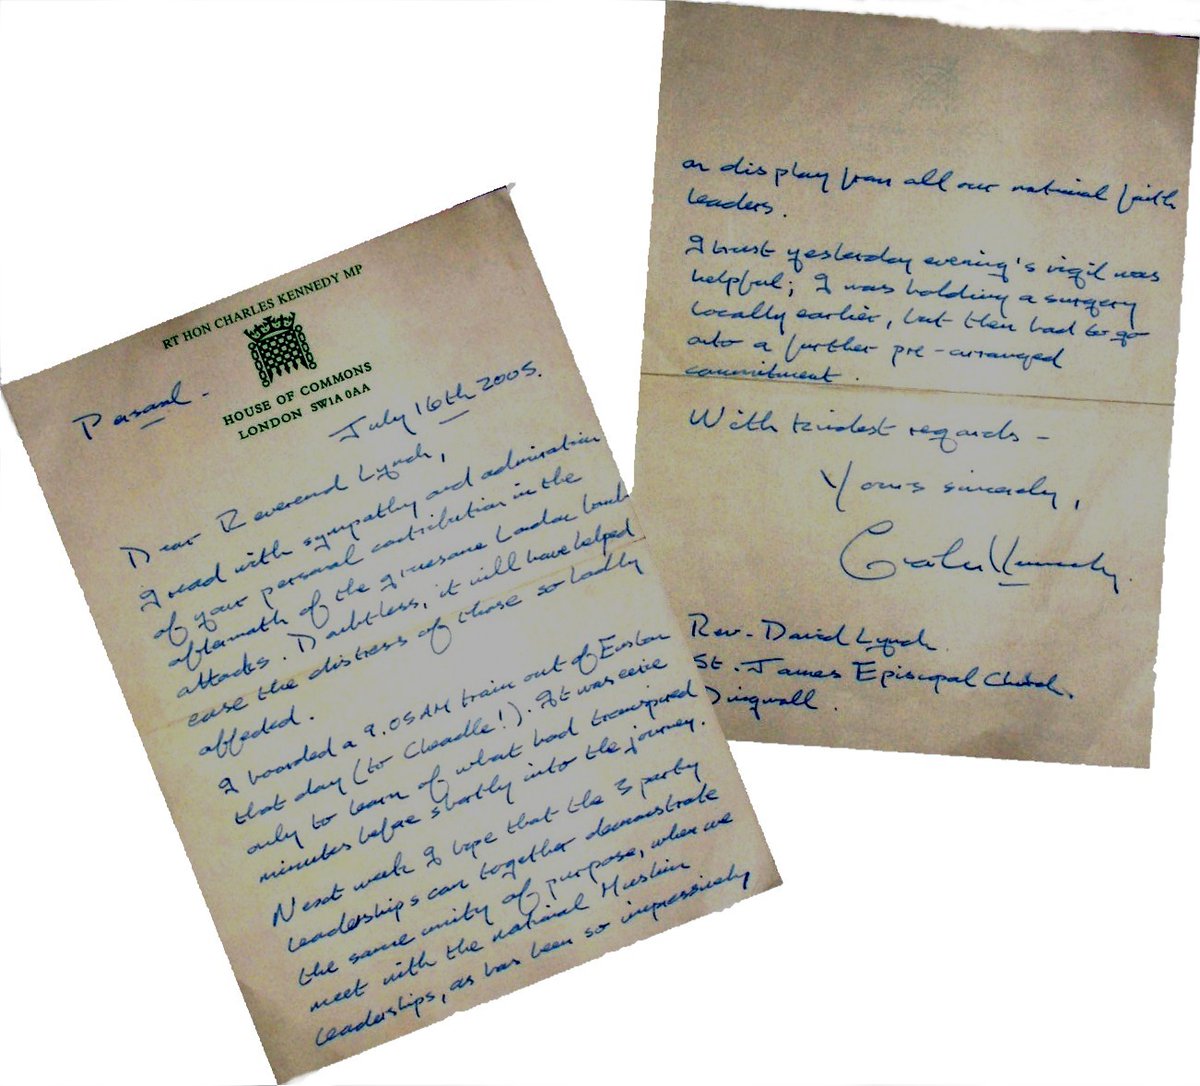 RT HON CHARLES KENNEDY MP
HOUSE OF COMMONS
LONDON SW1A 0AA
Personal.
July 16th 2005.
Dear Reverend Lynch,
I read with sympathy and admiration
of your personal contribution in the
aftermath of the gruesome London bomb
attacks. Doubtless, it will have helped
ease the distress of those so badly
affected.
I boarded a 9.05AM train out of Euston
that day (to Cheadle!). It was eerie
only to learn of what had transpired
minutes before shortly into the journey.
Next week I hope that the 3 party
leaderships can together demonstrate
the same unity of purpose, when we
meet with the national Muslim
leaderships, as has been so impressively
on display from all our national faith
leaders.
I trust yesterday evening's vigil was
helpful; I was holding a surgery
locally earlier, but then had to go
onto a further pre-arranged
commitment.
With kindest regards -
Yours sincerely,
Charles Kennedy.
Rev. David Lynch
St. James Episcopal Church.
Dingwall.